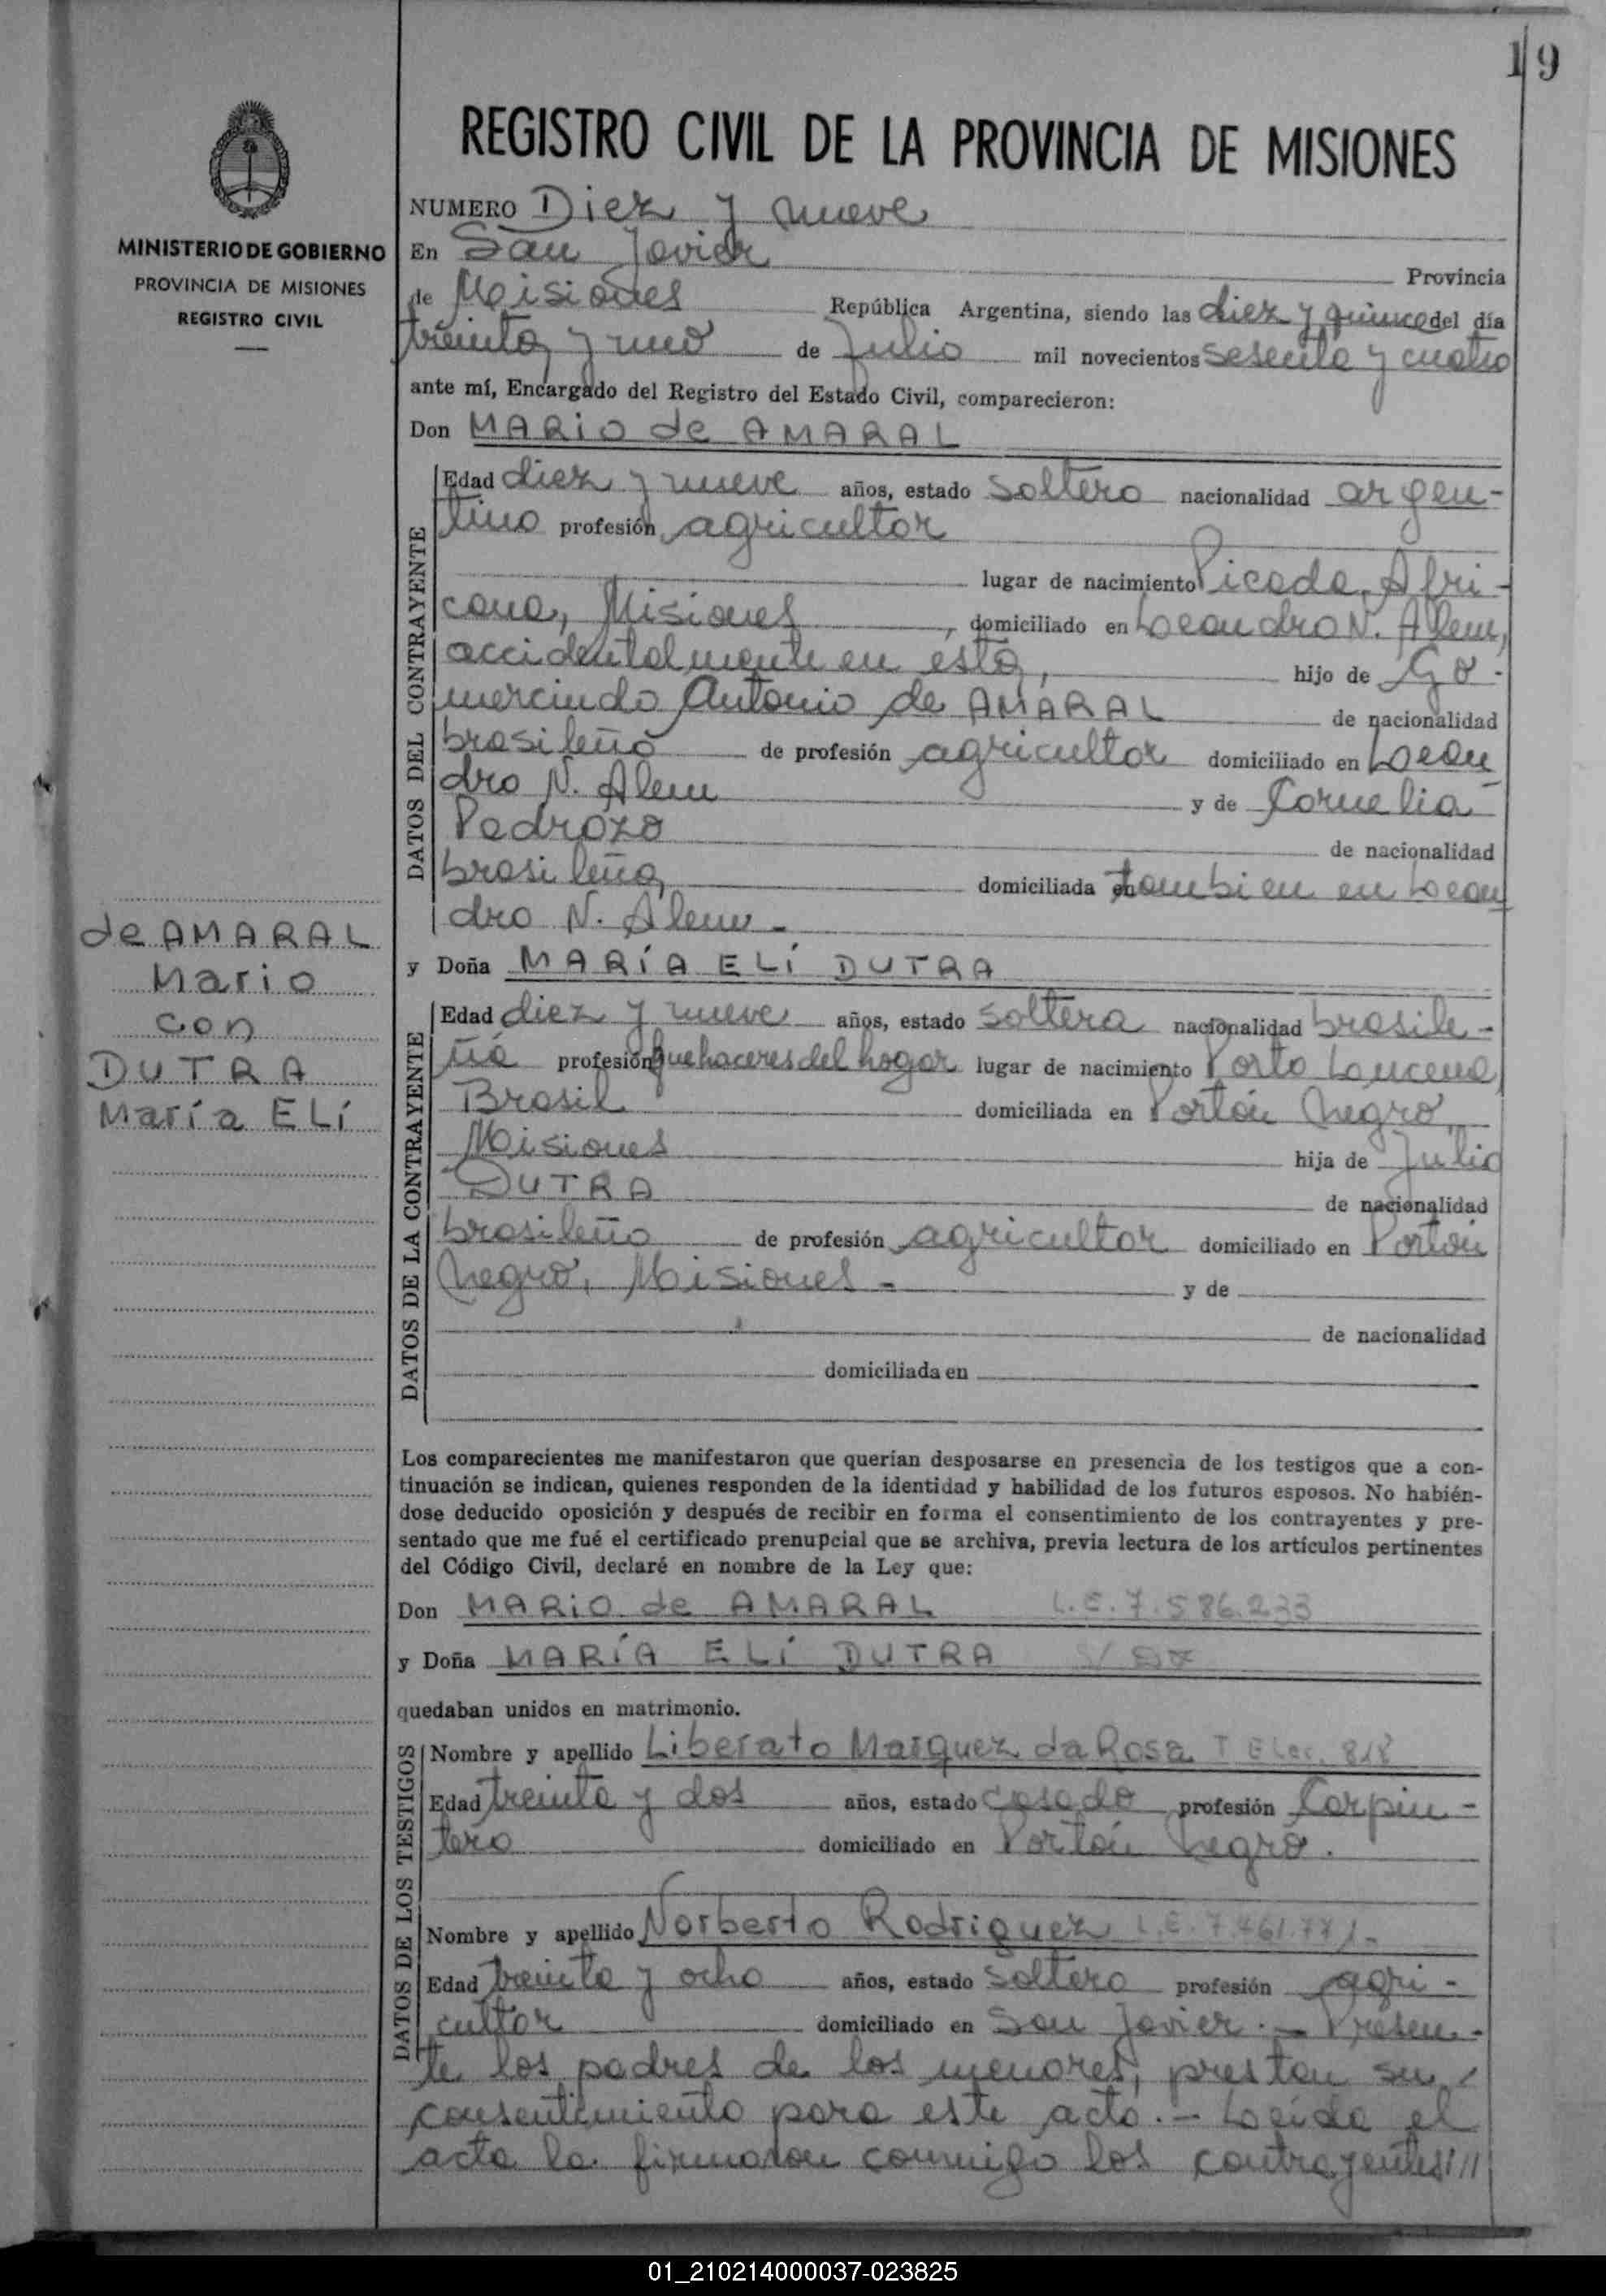 19
REGISTRO CIVIL DE LA PROVINCIA DE MISIONES
MINISTERIO DE GOBIERNO
PROVINCIA DE MISIONES
REGISTRO CIVIL
de AMARAL
Mario
con
DUTRA
María ELÍ
NUMERO Diez y nueve
En San Javier Provincia
de Misiones República Argentina, siendo las diez y quince del día
treinta y uno de Julio mil novecientos sesenta y cuatro
ante mí, Encargado del Registro del Estado Civil, comparecieron:
Don MARIO de AMARAL
DATOS DEL CONTRAYENTE
Edad diez y nueve años, estado soltero nacionalidad argen-
tino profesión agricultor
lugar de nacimiento Picada Afri-
cana, Misiones, domiciliado en Leandro N. Alem,
accidentalmente en esta, hijo de Go-
mercindo Antonio de AMARAL de nacionalidad
brasileño de profesión agricultor domiciliado en Lean
dro N. Alem y de Cornelia
Pedrozo de nacionalidad
brasileña, domiciliada en tambien en Lean
dro N. Alem.-
y Doña MARÍA ELÍ DUTRA
DATOS DE LA CONTRAYENTE
Edad diez y nueve años, estado soltera nacionalidad brasile-
ña profesión quehaceres del hogar lugar de nacimiento Porto Loucena,
Brasil domiciliada en Portón Negro,
Misiones hija de Julio
DUTRA de nacionalidad
brasileño de profesión agricultor domiciliado en Portón
Negro, Misiones.- y de
de nacionalidad
domiciliada en
Los comparecientes me manifestaron que querían desposarse en presencia de los testigos que a con-
tinuación se indican, quienes responden de la identidad y habilidad de los futuros esposos. No habién-
dose deducido oposición y después de recibir en forma el consentimiento de los contrayentes y pre-
sentado que me fué el certificado prenupcial que se archiva, previa lectura de los artículos pertinentes
del Código Civil, declaré en nombre de la Ley que:
Don MARIO de AMARAL L.E. 7.586.233
y Doña MARÍA ELÍ DUTRA
quedaban unidos en matrimonio.
DATOS DE LOS TESTIGOS
Nombre y apellido Liberato Marquez da Rosa T Elec. 818
Edad treinta y dos años, estado casado profesión Carpin-
tero domiciliado en Portón Negro.
Nombre y apellido Norberto Rodriguez L.E. 7.461.771.-
Edad treinta y ocho años, estado soltero profesión agri-
cultor domiciliado en San Javier.- Presen-
te los padres de los menores, prestan su
consentimiento para este acto.- Leída el
acta la firmaron conmigo los contrayentes///
01_210214000037-023825